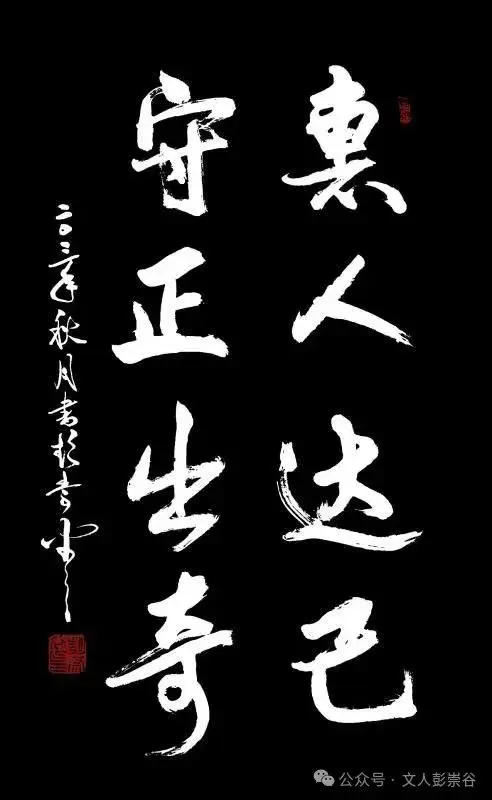 惠人达己
守正出奇
二〇二三年秋月书
公众号 · 文人彭崇谷